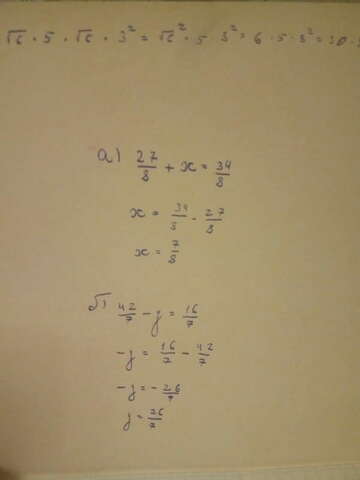 √6 · 5 · √6 · 3² = √6² · 5 · 3² = 6 · 5 · 3² = 30 ·
а) 27/8 + x = 34/8
x = 34/8 - 27/8
x = 7/8
б) 42/7 - y = 16/7
-y = 16/7 - 42/7
-y = - 26/7
y = 26/7